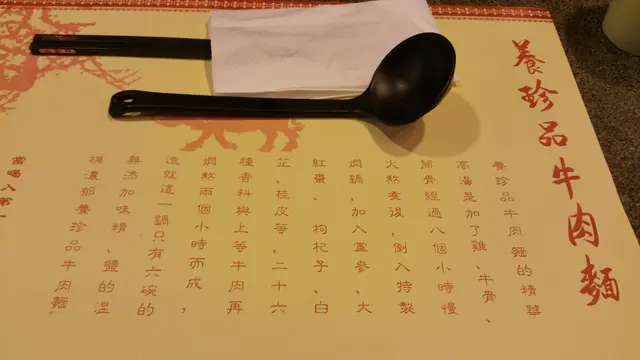 養珍品牛肉麵
養珍品牛肉麵的精華
高湯是加了雞、牛骨、
筒骨經過八個小時慢
火熬煮後，倒入特製
燜鍋，加入黨參、大
紅棗、枸杞子、白
芷、桂皮等，二十六
種香料與上等牛肉再
燜熬兩個小時而成，
造就這一鍋只有六碗的
無添加味精、鹽的溫
補濃郁養珍品牛肉麵
當喝入第一